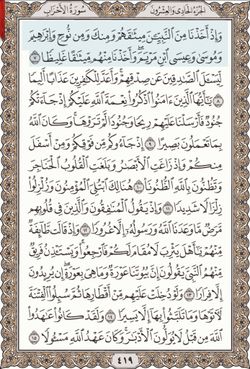 الجزء الحادي والعشرون سورة الأحزاب
وَإِذْ أَخَذْنَا مِنَ ٱلنَّبِيِّـۧنَ مِيثَٰقَهُمْ وَمِنكَ وَمِن نُّوحٍ وَإِبْرَٰهِيمَ
وَمُوسَىٰ وَعِيسَى ٱبْنِ مَرْيَمَ ۖ وَأَخَذْنَا مِنْهُم مِّيثَٰقًا غَلِيظًا ٧
لِّيَسْـَٔلَ ٱلصَّٰدِقِينَ عَن صِدْقِهِمْ ۚ وَأَعَدَّ لِلْكَٰفِرِينَ عَذَابًا أَلِيمًا
٨ يَٰٓأَيُّهَا ٱلَّذِينَ ءَامَنُوا۟ ٱذْكُرُوا۟ نِعْمَةَ ٱللَّهِ عَلَيْكُمْ إِذْ جَآءَتْكُمْ
جُنُودٌ فَأَرْسَلْنَا عَلَيْهِمْ رِيحًا وَجُنُودًا لَّمْ تَرَوْهَا ۚ وَكَانَ ٱللَّهُ
بِمَا تَعْمَلُونَ بَصِيرًا ٩ إِذْ جَآءُوكُم مِّن فَوْقِكُمْ وَمِنْ أَسْفَلَ
مِنكُمْ وَإِذْ زَاغَتِ ٱلْأَبْصَٰرُ وَبَلَغَتِ ٱلْقُلُوبُ ٱلْحَنَاجِرَ
وَتَظُنُّونَ بِٱللَّهِ ٱلظُّنُونَا۠ ١٠ هُنَالِكَ ٱبْتُلِىَ ٱلْمُؤْمِنُونَ وَزُلْزِلُوا۟
زِلْزَالًا شَدِيدًا ١١ وَإِذْ يَقُولُ ٱلْمُنَٰفِقُونَ وَٱلَّذِينَ فِى قُلُوبِهِم
مَّرَضٌ مَّا وَعَدَنَا ٱللَّهُ وَرَسُولُهُۥٓ إِلَّا غُرُورًا ١٢ وَإِذْ قَالَت طَّآئِفَةٌ
مِّنْهُمْ يَٰٓأَهْلَ يَثْرِبَ لَا مُقَامَ لَكُمْ فَٱرْجِعُوا۟ ۚ وَيَسْتَـْٔذِنُ فَرِيقٌ
مِّنْهُمُ ٱلنَّبِىَّ يَقُولُونَ إِنَّ بُيُوتَنَا عَوْرَةٌ وَمَا هِىَ بِعَوْرَةٍ ۖ إِن يُرِيدُونَ
إِلَّا فِرَارًا ١٣ وَلَوْ دُخِلَتْ عَلَيْهِم مِّنْ أَقْطَارِهَا ثُمَّ سُئِلُوا۟ ٱلْفِتْنَةَ
لَءَاتَوْهَا وَمَا تَلَبَّثُوا۟ بِهَآ إِلَّا يَسِيرًا ١٤ وَلَقَدْ كَانُوا۟ عَٰهَدُوا۟
ٱللَّهَ مِن قَبْلُ لَا يُوَلُّونَ ٱلْأَدْبَٰرَ ۚ وَكَانَ عَهْدُ ٱللَّهِ مَسْـُٔولًا ١٥
٤١٩